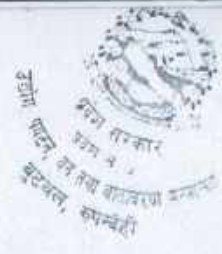 प्रदेश सरकार
उद्योग पर्यटन, वन तथा वातावरण मन्त्रालय
बुटवल, रुपन्देही